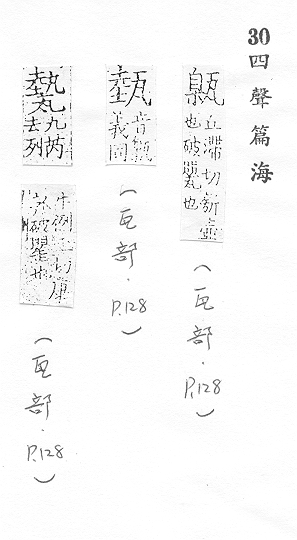 30四聲篇海
甈 丘滯切
壺也破罌也
(瓦部.P.128)
音
義同
(瓦部.P.128)
九芮
去列
切康
破罌也
(瓦部.P.128)